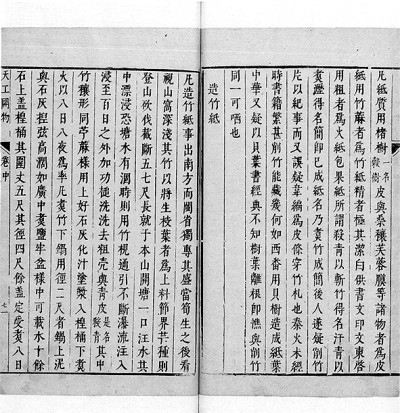 凡紙質用楮樹一名榖樹皮與桑穰芙蓉膜等諸物者為皮
紙用竹麻者為竹紙精者極其潔白供書文印文柬啓
用粗者為火紙包裹紙所謂殺青以斬竹得名汗青以
煮瀝得名簡即已成紙名乃煮竹成簡後人遂疑削竹
片以紀事而又誤疑韋編為皮條穿竹札也秦火未經
時書籍繁甚削竹能藏幾何如西番用貝樹造成紙葉
中華又疑以貝葉書經典不知樹葉離根即焦與削竹
同一可哂也
造竹紙
凡造竹紙事出南方而閩省獨專其盛當筍生之後看
視山窩深淺其竹以將生枝葉者為上料節界芒種則
登山砍伐截斷五七尺長就于本山開塘一口注水其
中漂浸恐塘水有涸時則用竹梘通引不斷瀑流注入
浸至百日之外加功槌洗洗去粗殼與青皮是名殺青其中
竹穰形同苧麻樣用上好石灰化汁塗漿入楻桶下煮
火以八日八夜為率凡煮竹下鍋用徑尺者鍋上泥
與石灰捏弦高闊如廣中煮鹽牢盆樣中可載水十餘
石上蓋楻桶其圍丈五尺其徑四尺餘蓋定受煮八日
天工開物 卷中